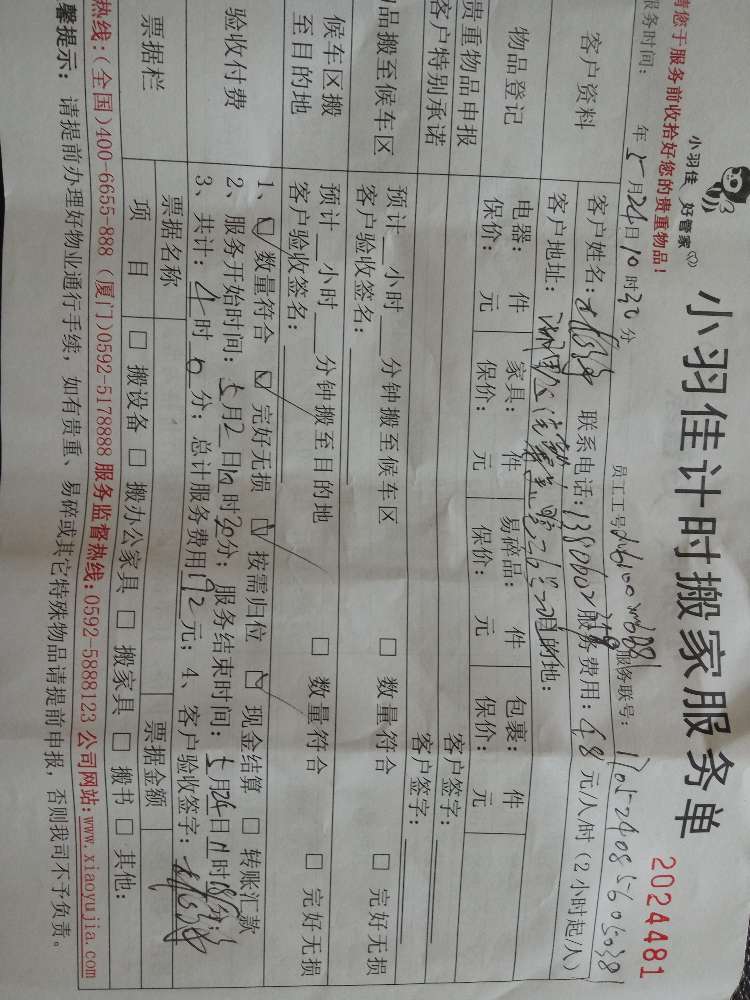 小羽佳 好管家
小羽佳计时搬家服务单
2024481
请您于服务前收拾好您的贵重物品！
员工工号：
服务联号：
服务时间： 年 5 月 24 日 10 时 30 分
客户资料
客户姓名： 联系电话： 服务费用：48 元/人/时（2小时起/人）
客户地址： 目的地：
物品登记
电器： 件 家具： 件 易碎品： 件 包裹： 件
保价： 元 保价： 元 保价： 元 保价： 元
贵重物品申报 客户签字：
客户特别承诺 客户签字：
物品搬至候车区
预计 小时 分钟搬至候车区 □ 数量符合 □ 完好无损
客户验收签名：
候车区搬至目的地
预计 小时 分钟搬至目的地 □ 数量符合 □ 完好无损
客户验收签名：
验收付费
1、☑ 数量符合 ☑ 完好无损 ☑ 按需归位 ☑ 现金结算 □ 转账汇款
2、服务开始时间：5月 日 时30分；服务结束时间：5月24日 时 分；
3、共计：4时0分；总计服务费用192元；4、客户验收签字：
票据栏
票据名称 票据金额
项 目 □ 搬设备 □ 搬办公家具 □ 搬家具 □ 搬书 □ 其他：
热线：（全国）400-6655-888（厦门）0592-5178888 服务监督热线：0592-5888123 公司网站：www.xiaoyujia.com
馨提示： 请提前办理好物业通行手续，如有贵重、易碎或其它特殊物品请提前申报，否则我司不予负责。